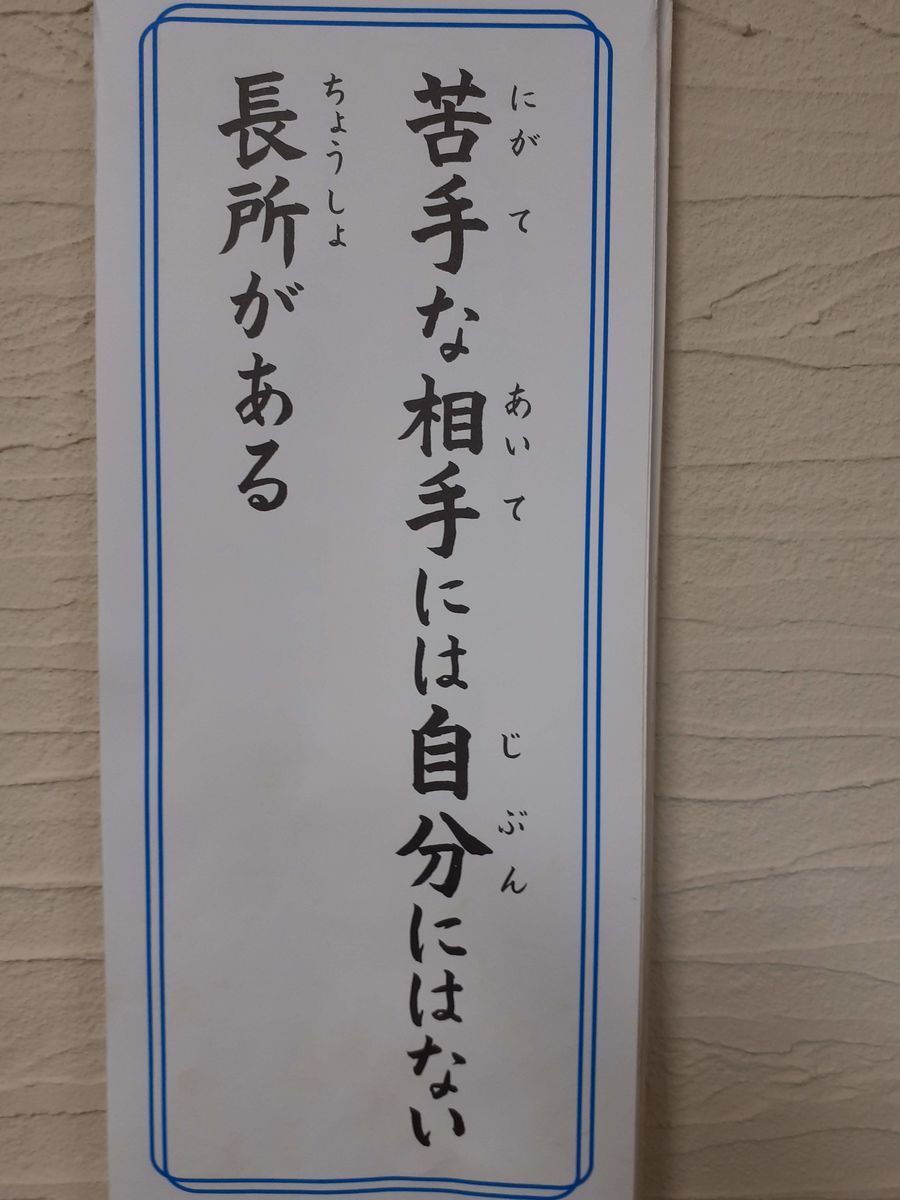 苦手な相手には自分にはない
にがて あいて じぶん
長所がある
ちょうしょ